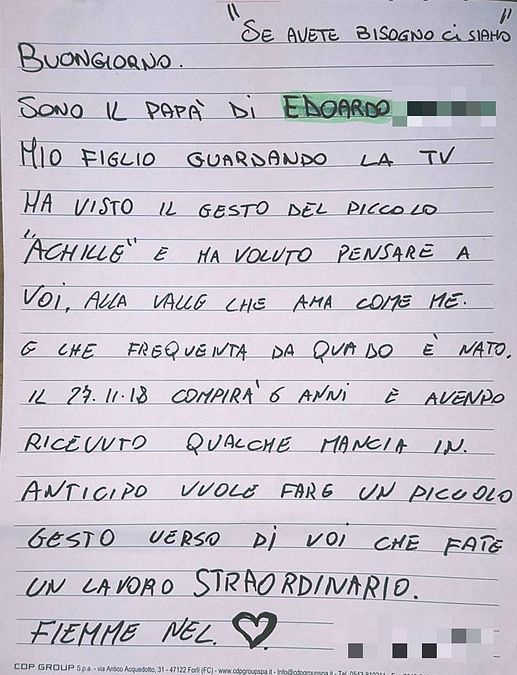 "SE AVETE BISOGNO Ci SIAMO"
BUONGIORNO.
SONO IL PAPÀ Di EDOARDO
MIO FIGLIO GUARDANDO LA TV
HA VISTO IL GESTO DEL PICCOLO
"ACHILLE" E HA VOLUTO PENSARE A
VOI, ALLA VALLE CHE AMA COME ME.
E CHE FREQUENTA DA QUADO È NATO.
IL 27.11.18 COMPIRA' 6 ANNI E AVENDO
RICEVUTO QUALCHE MANCIA IN.
ANTICIPO VUOLE FARE UN PICCOLO
GESTO VERSO Di VOI CHE FATE
UN LAVORO STRAORDINARIO.
FIEMME NEL. ♡
CDP GROUP S.p.a. - via Antico Acquedotto, 31 - 47122 Forlì (FC) - www.cdpgroupspa.it - Info@cdpgroupspa.it - Tel.